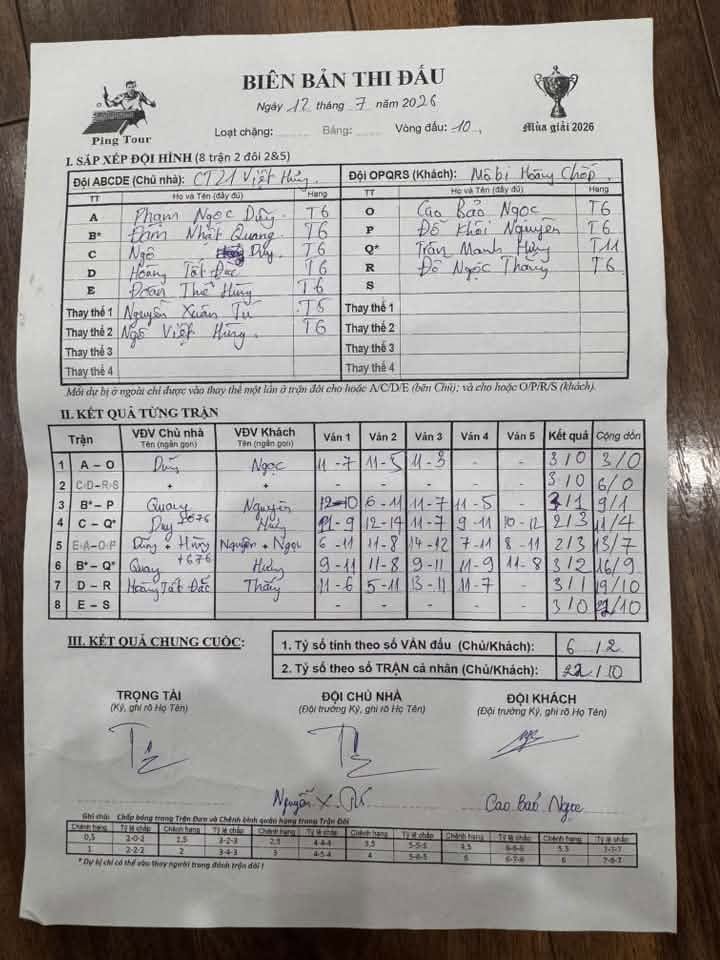 BIÊN BẢN THI ĐẤU
Ngày 12 tháng 7 năm 2026
Ping Tour
Loạt chặng: ........ Bảng: ........ Vòng đấu: 10
Mùa giải 2026
I. SẮP XẾP ĐỘI HÌNH (8 trận 2 đôi 2&5)
Đội ABCDE (Chủ nhà): CT21 Việt Hưng. Đội OPQRS (Khách): Mobi Hoàng Chốp.
TT Họ và Tên (đầy đủ) Hạng TT Họ và Tên (đầy đủ) Hạng
A Phạm Ngọc Dũng T6 O Cao Bảo Ngọc T6
B* Đàm Nhật Quang T6 P Đỗ Khôi Nguyên T6
C Ngô Duy T6 Q* Trần Mạnh Hưng T11
D Hoàng Tất Đắc T6 R Đỗ Ngọc Thắng T6
E Đoàn Thế Hùng T6 S
Thay thế 1 Nguyễn Xuân Tú T5 Thay thế 1
Thay thế 2 Ngô Việt Hùng T6 Thay thế 2
Thay thế 3 Thay thế 3
Thay thế 4 Thay thế 4
Mỗi dự bị ở ngoài chỉ được vào thay thế một lần ở trận đôi cho hoặc A/C/D/E (bên Chủ); và cho hoặc O/P/R/S (khách).
II. KẾT QUẢ TỪNG TRẬN
Trận VĐV Chủ nhà Tên (ngắn gọn) VĐV Khách Tên (ngắn gọn) Ván 1 Ván 2 Ván 3 Ván 4 Ván 5 Kết quả Cộng dồn
1 A – O Dũng Ngọc 11 - 7 11 - 5 11 - 3 - - 3/0 3/0
2 C+D – R+S + + - - - - - 3/0 6/0
3 B* – P Quang Nguyên 12-10 6 - 11 11 - 7 11 - 5 - 3/1 9/1
4 C – Q* Duy 5676 Hưng 11 - 9 12 - 14 11 - 7 9 - 11 10 - 12 2/3 11/4
5 E+A – O+P Dũng + Hùng Nguyên + Ngọc 6 - 11 11 - 8 14 - 12 7 - 11 8 - 11 2/3 13/7
6 B* – Q* Quang +676 Hưng 9 - 11 11 - 8 9 - 11 11 - 9 11 - 8 3/2 16/9
7 D – R Hoàng Tất Đắc Thắng 11 - 6 5 - 11 13 - 11 11 - 7 - 3/1 19/10
8 E – S - - - - - 3/0 22/10
III. KẾT QUẢ CHUNG CUỘC:
1. Tỷ số tính theo số VÁN đấu (Chủ/Khách): 6/2
2. Tỷ số theo số TRẬN cá nhân (Chủ/Khách): 22/10
TRỌNG TÀI ĐỘI CHỦ NHÀ ĐỘI KHÁCH
(Ký, ghi rõ Họ Tên) (Đội trưởng Ký, ghi rõ Họ Tên) (Đội trưởng Ký, ghi rõ Họ Tên)
Nguyễn X. Cao Bảo Ngọc
Ghi chú: Chấp bóng trong Trận Đơn và Chênh bình quân hạng trong Trận Đôi
Chênh hạng Tỷ lệ chấp Chênh hạng Tỷ lệ chấp Chênh hạng Tỷ lệ chấp Chênh hạng Tỷ lệ chấp Chênh hạng Tỷ lệ chấp Chênh hạng Tỷ lệ chấp
0,5 2-0-2 1,5 3-2-3 2,5 4-4-4 3,5 5-5-5 4,5 6-6-6 5,5 7-7-7
1 2-2-2 2 3-4-3 3 4-5-4 4 5-6-5 5 6-7-6 6 7-8-7
* Dự bị chỉ có thể vào thay người trong đánh trận đôi !